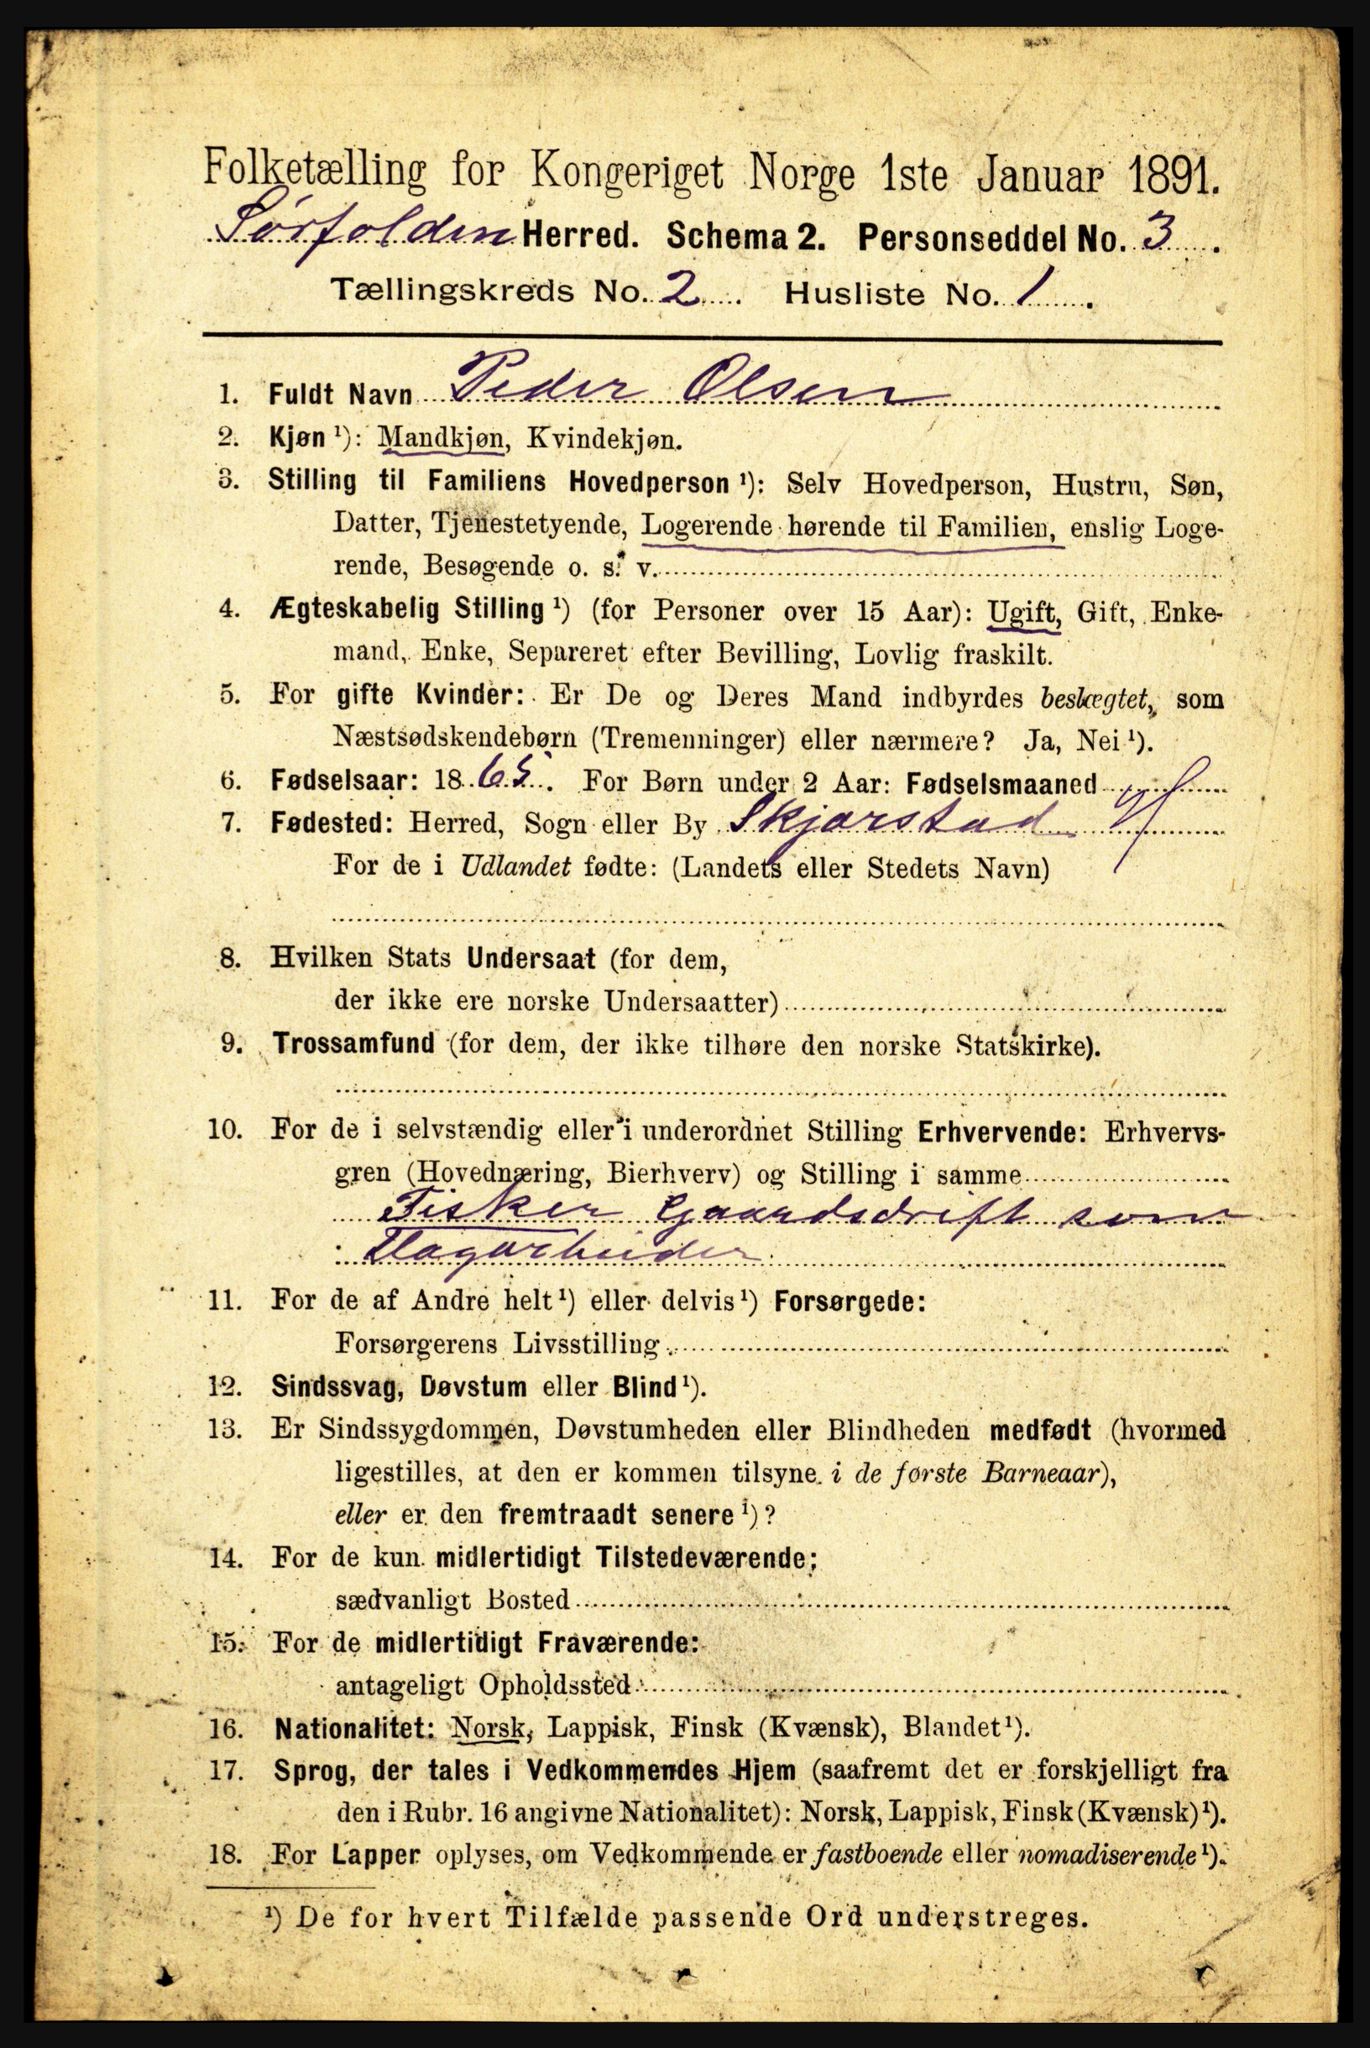 Folketælling for Kongeriget Norge 1ste Januar 1891.
Sørfolden Herred. Schema 2. Personseddel No. 3.
Tællingskreds No. 2. Husliste No. 1.
1. Fuldt Navn Peder Olsen
2. Kjøn ¹): Mandkjøn, Kvindekjøn.
3. Stilling til Familiens Hovedperson ¹): Selv Hovedperson, Hustru, Søn,
Datter, Tjenestetyende, Logerende hørende til Familien, enslig Loge-
rende, Besøgende o. s. v.
4. Ægteskabelig Stilling ¹) (for Personer over 15 Aar): Ugift, Gift, Enke-
mand, Enke, Separeret efter Bevilling, Lovlig fraskilt.
5. For gifte Kvinder: Er De og Deres Mand indbyrdes beslægtet, som
Næstsødskendebørn (Tremenninger) eller nærmere? Ja, Nei ¹).
6. Fødselsaar: 1865. For Børn under 2 Aar: Fødselsmaaned
7. Fødested: Herred, Sogn eller By Skjærstad
For de i Udlandet fødte: (Landets eller Stedets Navn)
8. Hvilken Stats Undersaat (for dem,
der ikke ere norske Undersaatter)
9. Trossamfund (for dem, der ikke tilhøre den norske Statskirke).
10. For de i selvstændig eller i underordnet Stilling Erhvervende: Erhvervs-
gren (Hovednæring, Bierhverv) og Stilling i samme
Fisker Gaardsdrift som
Dagarbeider
11. For de af Andre helt ¹) eller delvis ¹) Forsørgede:
Forsørgerens Livsstilling
12. Sindssvag, Døvstum eller Blind ¹).
13. Er Sindssygdommen, Døvstumheden eller Blindheden medfødt (hvormed
ligestilles, at den er kommen tilsyne i de første Barneaar),
eller er den fremtraadt senere ¹)?
14. For de kun midlertidigt Tilstedeværende:
sædvanligt Bosted
15. For de midlertidigt Fraværende:
antageligt Opholdssted
16. Nationalitet: Norsk, Lappisk, Finsk (Kvænsk), Blandet ¹).
17. Sprog, der tales i Vedkommendes Hjem (saafremt det er forskjelligt fra
den i Rubr. 16 angivne Nationalitet): Norsk, Lappisk, Finsk (Kvænsk) ¹).
18. For Lapper oplyses, om Vedkommende er fastboende eller nomadiserende ¹).
¹) De for hvert Tilfælde passende Ord understreges.